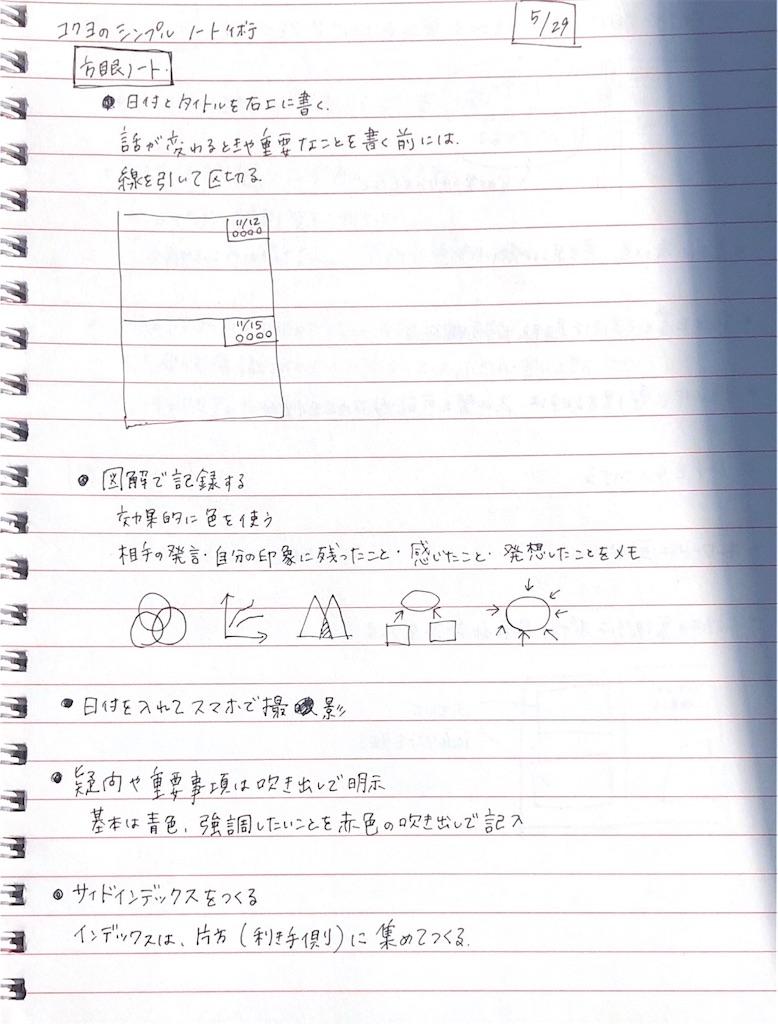 コクヨのシンプル ノート
5/29
方眼ノート
● 日付とタイトルを右上に書く.
話が変わるときや重要なことを書く前には.
線を引いて区切る.
11/12
○○○○
11/15
○○○○
● 図解で記録する
効果的に色を使う
・相手の発言・自分の印象に残ったこと・感じたこと・発想したことをメモ
● 日付を入れてスマホで撮影
● 疑問や重要事項は吹き出しで明示
基本は青色、強調したいことを赤色の吹き出しで記入
● サイドインデックスをつくる
インデックスは、片方(利き手側)に集めてつくる.